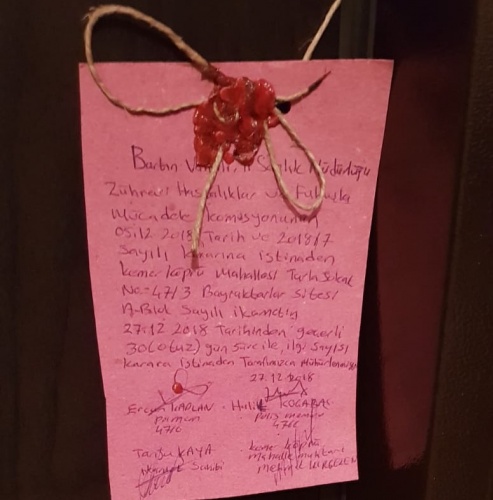 Bartın Valiliği İl Sağlık Müdürlüğü
Zührevi Hastalıklar ve Fuhuşla
Mücadele Komisyonunun
05.12.2018 Tarih ve 2018/7
Sayılı kararına istinaden
kemer köprü Mahallesi Turla Sokak
No-47/3 Bayraktarlar Sitesi
A-Blok Sayılı ikametin
27.12.2018 Tarihinden geçerli
30(otuz) gün süre ile, ilgi sayısı
karara istinaden Tarafımızca
27.12.2018
Ercan KAPLAN Halil KOCABAŞ
Polis memuru
Tarju KAYA
Mahalle muhtarı